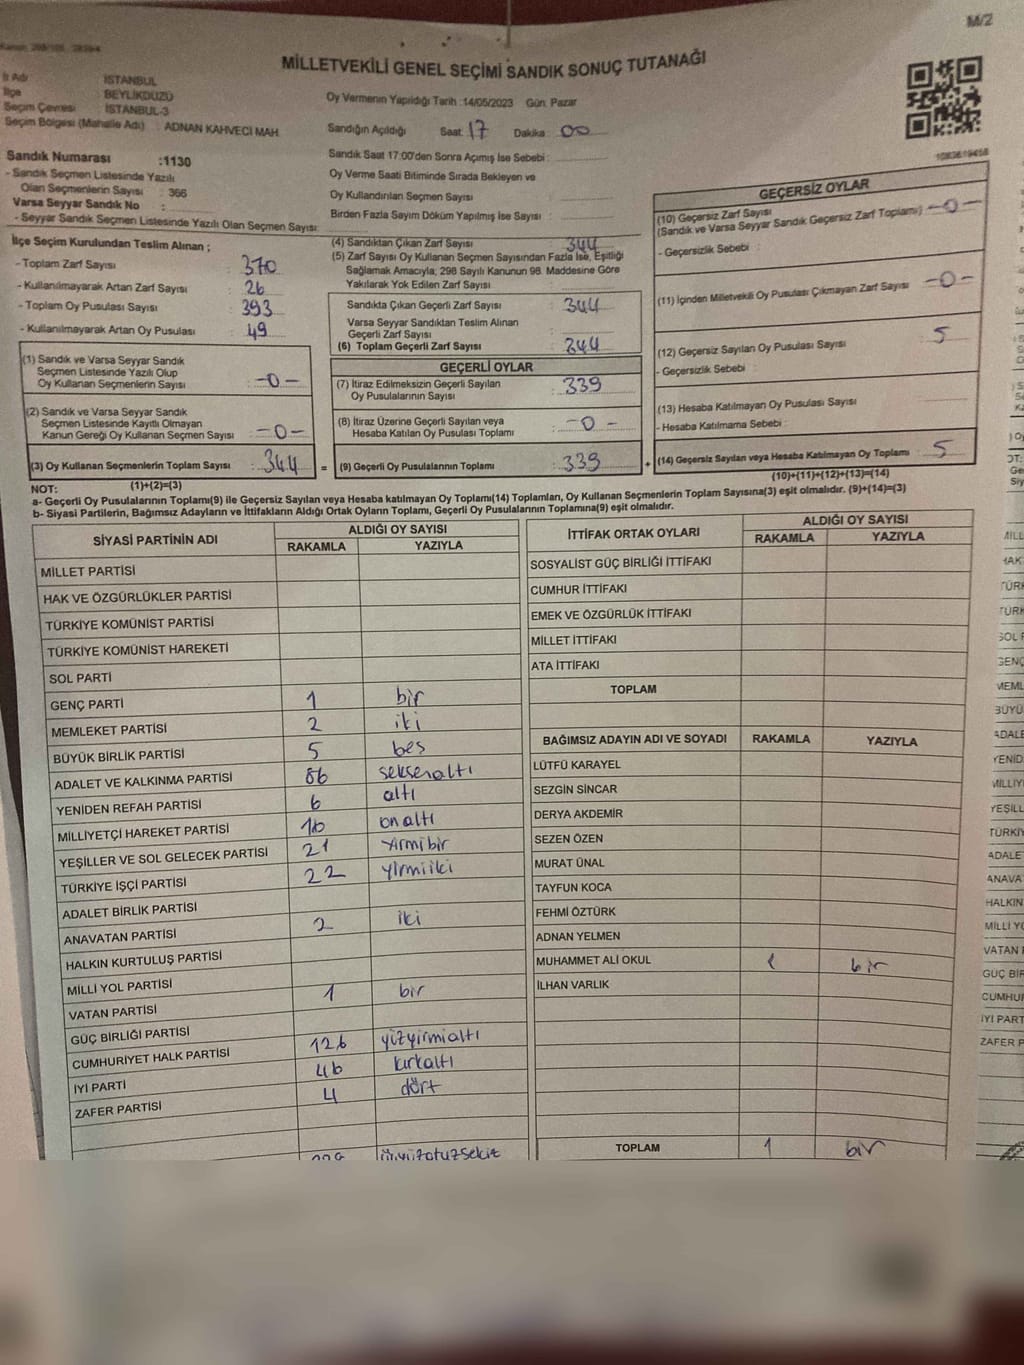 M/2
MİLLETVEKİLİ GENEL SEÇİMİ SANDIK SONUÇ TUTANAĞI
İl Adı İSTANBUL
İlçe BEYLİKDÜZÜ
Seçim Çevresi İSTANBUL-3
Seçim Bölgesi (Mahalle Adı) : ADNAN KAHVECİ MAH.
Oy Vermenin Yapıldığı Tarih :14/05/2023 Gün: Pazar
Sandığın Açıldığı Saat: 17 Dakika: 00
Sandık Saat 17:00'den Sonra Açımış İse Sebebi :
Oy Verme Saati Bitiminde Sırada Bekleyen ve
Oy Kullandırılan Seçmen Sayısı :
Birden Fazla Sayım Döküm Yapılmış İse Sayısı :
Sandık Numarası :1130
- Sandık Seçmen Listesinde Yazılı
Olan Seçmenlerin Sayısı : 366
Varsa Seyyar Sandık No :
- Seyyar Sandık Seçmen Listesinde Yazılı Olan Seçmen Sayısı:
İlçe Seçim Kurulundan Teslim Alınan ;
- Toplam Zarf Sayısı : 370
- Kullanılmayarak Artan Zarf Sayısı : 26
- Toplam Oy Pusulası Sayısı : 393
- Kullanılmayarak Artan Oy Pusulası : 49
(1) Sandık ve Varsa Seyyar Sandık
Seçmen Listesinde Yazılı Olup
Oy Kullanan Seçmenlerin Sayısı : -0-
(2) Sandık ve Varsa Seyyar Sandık
Seçmen Listesinde Kayıtlı Olmayan
Kanun Gereği Oy Kullanan Seçmen Sayısı : -0-
(3) Oy Kullanan Seçmenlerin Toplam Sayısı : 344 =
(1)+(2)=(3)
(4) Sandıktan Çıkan Zarf Sayısı : 344
(5) Zarf Sayısı Oy Kullanan Seçmen Sayısından Fazla İse, Eşitliği
Sağlamak Amacıyla; 298 Sayılı Kanunun 98. Maddesine Göre
Yakılarak Yok Edilen Zarf Sayısı :
Sandıkta Çıkan Geçerli Zarf Sayısı : 344
Varsa Seyyar Sandıktan Teslim Alınan
Geçerli Zarf Sayısı :
(6) Toplam Geçerli Zarf Sayısı : 344
GEÇERLİ OYLAR
(7) İtiraz Edilmeksizin Geçerli Sayılan
Oy Pusulalarının Sayısı : 339
(8) İtiraz Üzerine Geçerli Sayılan veya
Hesaba Katılan Oy Pusulası Toplamı : -0-
(9) Geçerli Oy Pusulalarının Toplamı : 339 +
GEÇERSİZ OYLAR
(10) Geçersiz Zarf Sayısı
(Sandık ve Varsa Seyyar Sandık Geçersiz Zarf Toplamı) -0-
- Geçersizlik Sebebi :
(11) İçinden Milletvekili Oy Pusulası Çıkmayan Zarf Sayısı -0-
(12) Geçersiz Sayılan Oy Pusulası Sayısı : 5
- Geçersizlik Sebebi :
(13) Hesaba Katılmayan Oy Pusulası Sayısı :
- Hesaba Katılmama Sebebi :
(14) Geçersiz Sayılan veya Hesaba Katılmayan Oy Toplamı : 5
(10)+(11)+(12)+(13)=(14)
NOT:
a- Geçerli Oy Pusulalarının Toplamı(9) ile Geçersiz Sayılan veya Hesaba katılmayan Oy Toplamı(14) Toplamları, Oy Kullanan Seçmenlerin Toplam Sayısına(3) eşit olmalıdır. (9)+(14)=(3)
b- Siyasi Partilerin, Bağımsız Adayların ve İttifakların Aldığı Ortak Oyların Toplamı, Geçerli Oy Pusulalarının Toplamına(9) eşit olmalıdır.
SİYASİ PARTİNİN ADI ALDIĞI OY SAYISI
RAKAMLA YAZIYLA
MİLLET PARTİSİ
HAK VE ÖZGÜRLÜKLER PARTİSİ
TÜRKİYE KOMÜNİST PARTİSİ
TÜRKİYE KOMÜNİST HAREKETİ
SOL PARTİ
GENÇ PARTİ 1 bir
MEMLEKET PARTİSİ 2 iki
BÜYÜK BİRLİK PARTİSİ 5 beş
ADALET VE KALKINMA PARTİSİ 86 seksenaltı
YENİDEN REFAH PARTİSİ 6 altı
MİLLİYETÇİ HAREKET PARTİSİ 16 onaltı
YEŞİLLER VE SOL GELECEK PARTİSİ 21 yirmibir
TÜRKİYE İŞÇİ PARTİSİ 22 yirmiiki
ADALET BİRLİK PARTİSİ
ANAVATAN PARTİSİ 2 iki
HALKIN KURTULUŞ PARTİSİ
MİLLİ YOL PARTİSİ
VATAN PARTİSİ 1 bir
GÜÇ BİRLİĞİ PARTİSİ
CUMHURİYET HALK PARTİSİ 126 yüzyirmialtı
İYİ PARTİ 46 kırkaltı
ZAFER PARTİSİ 4 dört
üçyüzotuzsekiz
İTTİFAK ORTAK OYLARI ALDIĞI OY SAYISI
RAKAMLA YAZIYLA
SOSYALİST GÜÇ BİRLİĞİ İTTİFAKI
CUMHUR İTTİFAKI
EMEK VE ÖZGÜRLÜK İTTİFAKI
MİLLET İTTİFAKI
ATA İTTİFAKI
TOPLAM
BAĞIMSIZ ADAYIN ADI VE SOYADI RAKAMLA YAZIYLA
LÜTFÜ KARAYEL
SEZGİN SİNCAR
DERYA AKDEMİR
SEZEN ÖZEN
MURAT ÜNAL
TAYFUN KOCA
FEHMİ ÖZTÜRK
ADNAN YELMEN
MUHAMMET ALİ OKUL 1 bir
İLHAN VARLIK
TOPLAM 1 bir